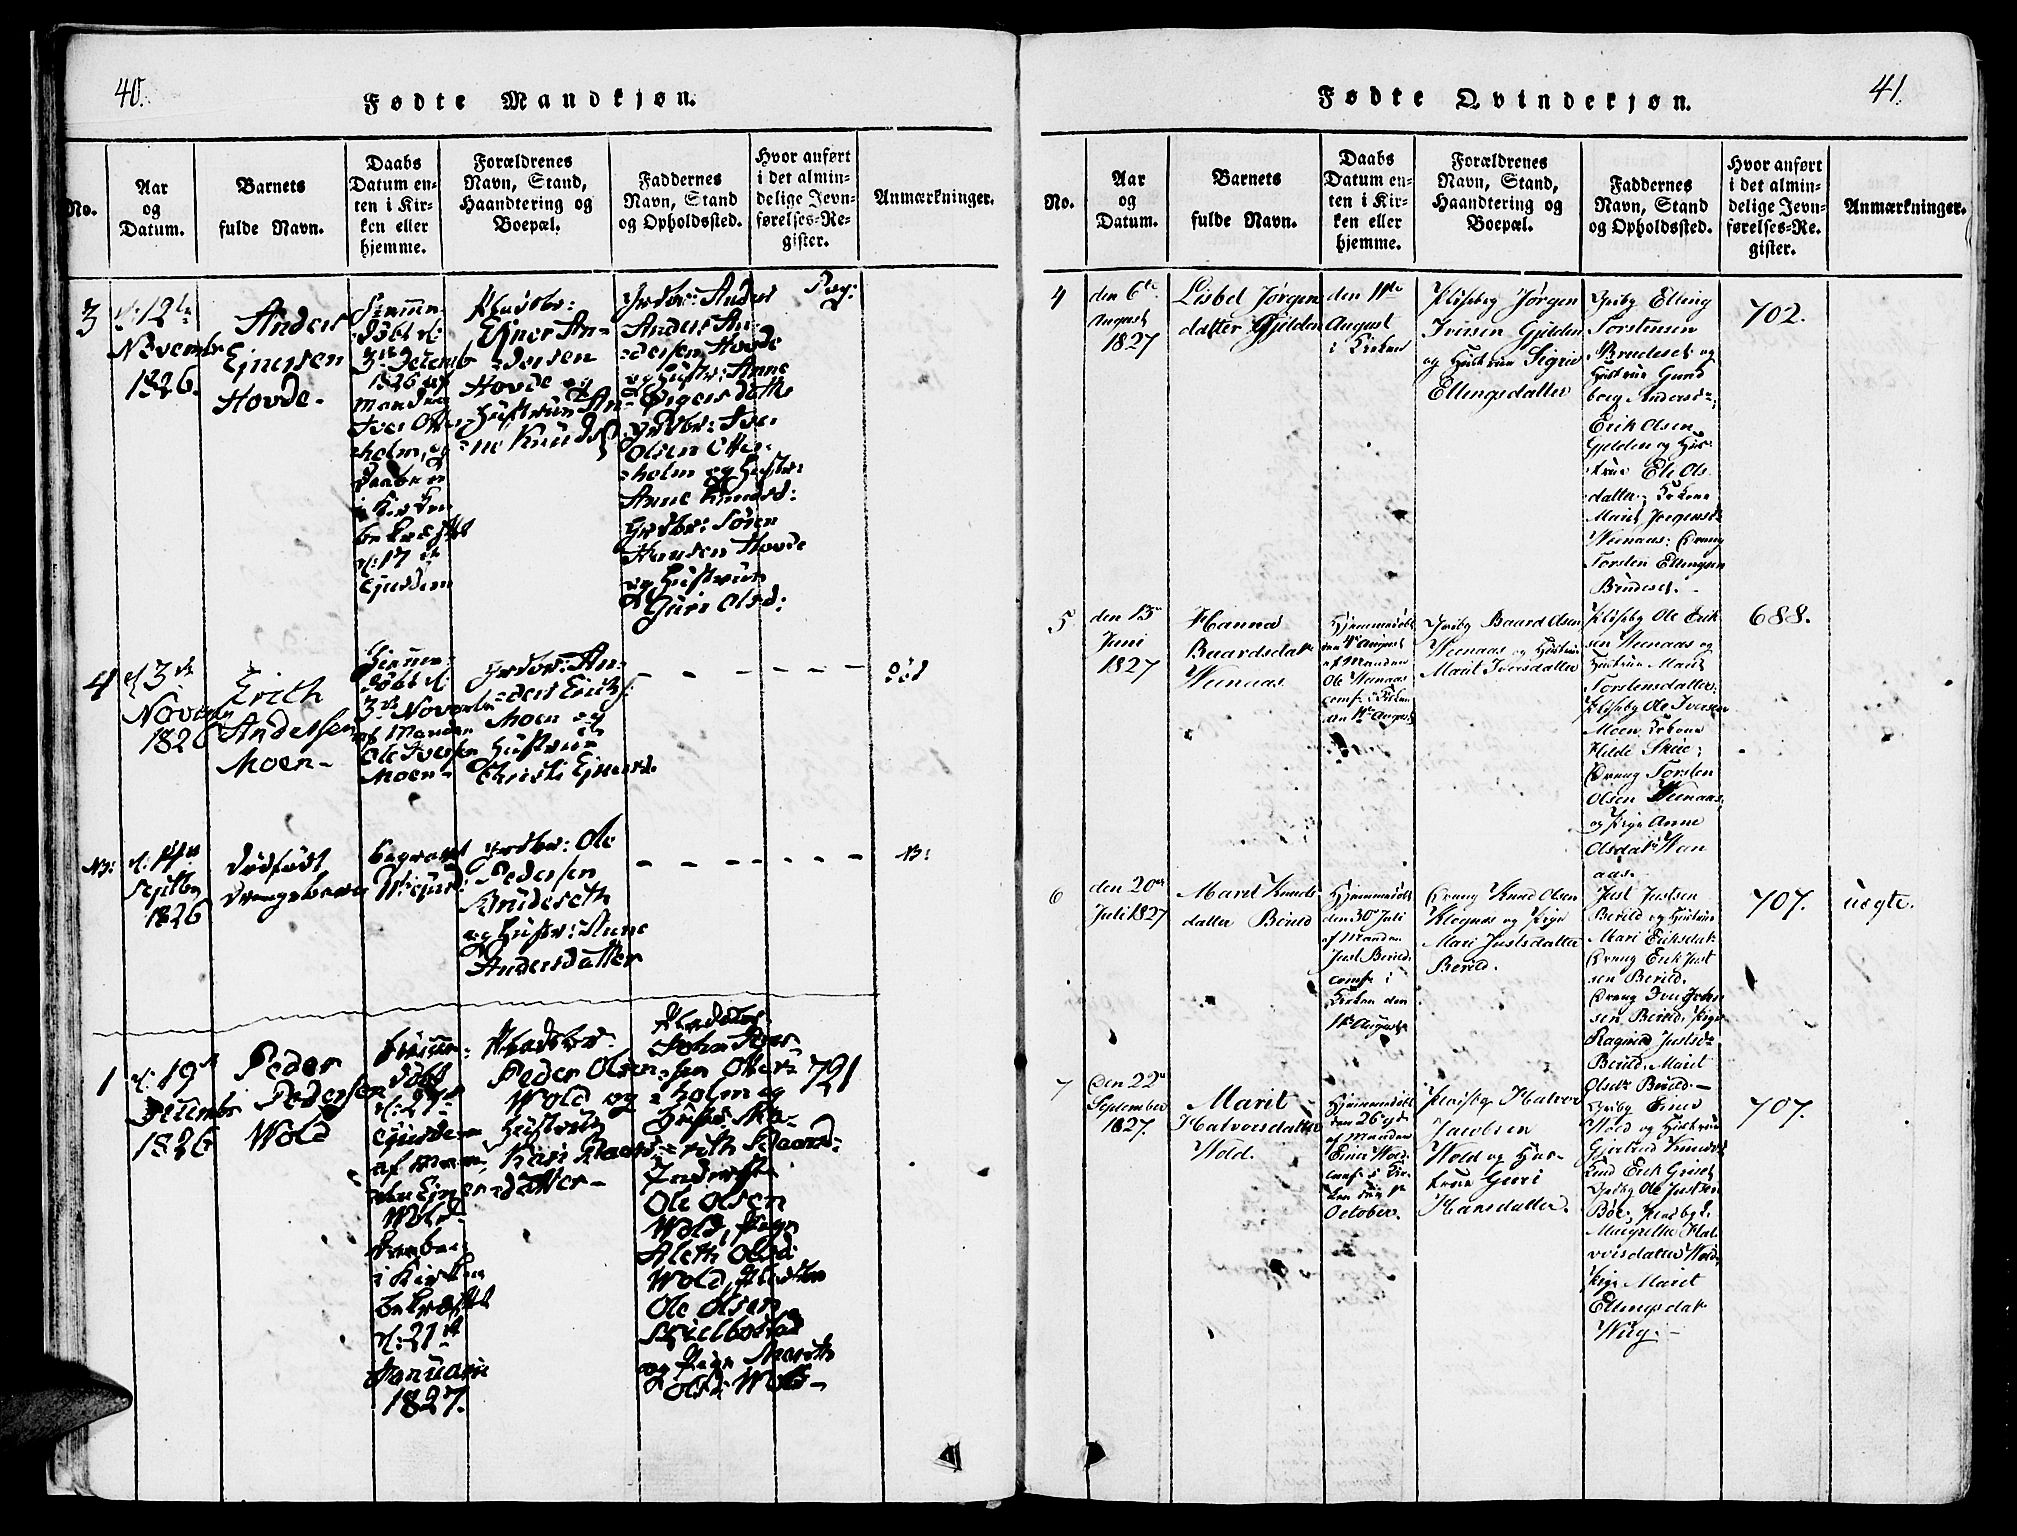 40.
Fødte Mandkjøn.
No.
Aar
og
Datum.
Barnets
fulde Navn.
Daabs
Datum en-
ten i Kir-
ken eller
hjemme.
Forældrenes
Navn, Stand,
Haandtering og
Boepæl.
Faddernes
Navn, Stand
og Opholdssted.
Hvor anført
i det almin-
delige Jevn-
førelses-Re-
gister.
Anmærkninger.
3
d: 12te
Novembr
1826.
Anders
Ejnersen
Hovde-
Hiemme-
døbt d:
3die Decemb
1826 af
Manden
Iver Otter-
holm, og
Daaben
i Kirken
bekræftet
d: 17de
Ejusdem
Pladsbr:
Ejner An-
dersen
Hovde og
Hustrue An-
ne Knudsd
Grdbr: Anders
Anders An-
dersen Hovde
og Hustr: Anne
Grdbr: Iver
Olsen Otter-
holm og Hustr:
Anne Knudsd:
Grdbr: Søren
Hansen Hovde
og Hustrue
Guri Olsd:
Pag:
4
d 3die
Novemb
1826
Erich
Andersen
Moen-
Hiemme-
døbt d:
3die Novemb
af Manden
Ole Iversen
Moen-
Grdbr: An-
ders Erichs:
Moen og
Hustrue
Christi Ejnersd.
- - - - - -
død
NB:
d: 14de
Septbr
1826
Dødfødt
Drengebarn
begravet
Grdbr: Ole
Pedersen
Brudeseth
og Hustr: Anne
Andersdatter
- - - - - -
NB:
1
d: 19de
Decembr
1826
Peder
Pedersen
Wold
Hiemme-
døbt
d: 27de
Ejusdem
af Man-
den Ejner
Wold-
Daaben
i Kirken
bekræftet
d: 21de
Januarii
1827.
Pladsbr.
Peder Olsen
Wold og
Hustrue
Kari Knuds-
datter-
Pladsbr
John Iver-
sen Otter-
holm og
Hustr: Ma-
rith Knuds-
Inderst
Ole Olsen
Wold, Pige
Aleth Olsd:
Wold, Pladsbr
Ole Olsen
Skielbostad
og Pige Marith
Olsd: Wold-
721
41.
Fødte Qvindekjøn.
No.
Aar
og
Datum.
Barnets
fulde Navn.
Daabs
Datum en-
ten i Kir-
ken eller
hjemme.
Forældrenes
Navn, Stand,
Haandtering og
Boepæl.
Faddernes
Navn, Stand
og Opholdssted.
Hvor anført
i det almin-
delige Jevn-
førelses-Re-
gister.
Anmærkninger.
4
den 6te
August
1827
Lisbet Jørgen
datter Gjelden
den 11te
August
i Kirken
Pladsbg Jørgen
Iversen Gjelden
og Hustrue Sigrid
Ellingsdatter
Grdbg Elling
Torstensen
Brudeset og
Hustrue Gund
borg Andersd:
Erik Olsen
Gjelden og Hus
true Eli Ols
datter; Enkone
Marit Jørgensd:
Weenaas: Dreng
Torsten Ellingsen
Brudeset. -
702.
5
den 13de
Juni
1827
Hanna
Baardsdat
Wenaas
Hjemmedøbt
den 4de August
af Manden
Ole Wenaas
comf: i Kirken
den 11te August
Grdbg Baard Olsen
Weenaas og Hustrue
Marit Iversdatter
Pladsbg Ole Erik
sen Weenaas og
Hustrue Marit
Torstensdatter
Pladsbg Ole Iversen
Moen. Enkone
Hilde Skeie;
Dreng Torsten
Olsen Weenaas
og Pige Anne
Olsdat Ween
aas.
688.
6
den 20de
Juli 1827
Marit Knuds
datter Berild
Hjemmedøbt
den 30te Juli
af Manden
Just Berild.
comf: i
Kirken den
11te August
Dreng Knud Olsen
Klognæs og Pige
Mari Justsdatter
Berild.
Just Justsen
Berild og Hustrue
Mari Eriksdat
Dreng Erik Just
sen Berild.
Dreng Iver Johan
sen Berild. Pige
Ragnid Justsd:
Berild. Marit
Olsdt Berild. -
707.
uægte.
7
Den 22de
September
1827.
Marit
Halvorsdatter
Wold.
Hjemmedøbt
den 26 Sept
af Manden
Einer Wold.
comf: i Kir-
ken den 1te
October.
Pladsbg Halvor
Jacobsen
Wold og Hus-
true Guri
Hansdatter.
Grdbg Einer
Wold og Hustrue
Gjertrud Knudsd
Erik Griset
Grdbg Ole Justsen
Bøe. Pladsbg
Margrethe Hal
vorsdatter Wold.
Pige Marit
Ellingsdat
Wiig. -
707.